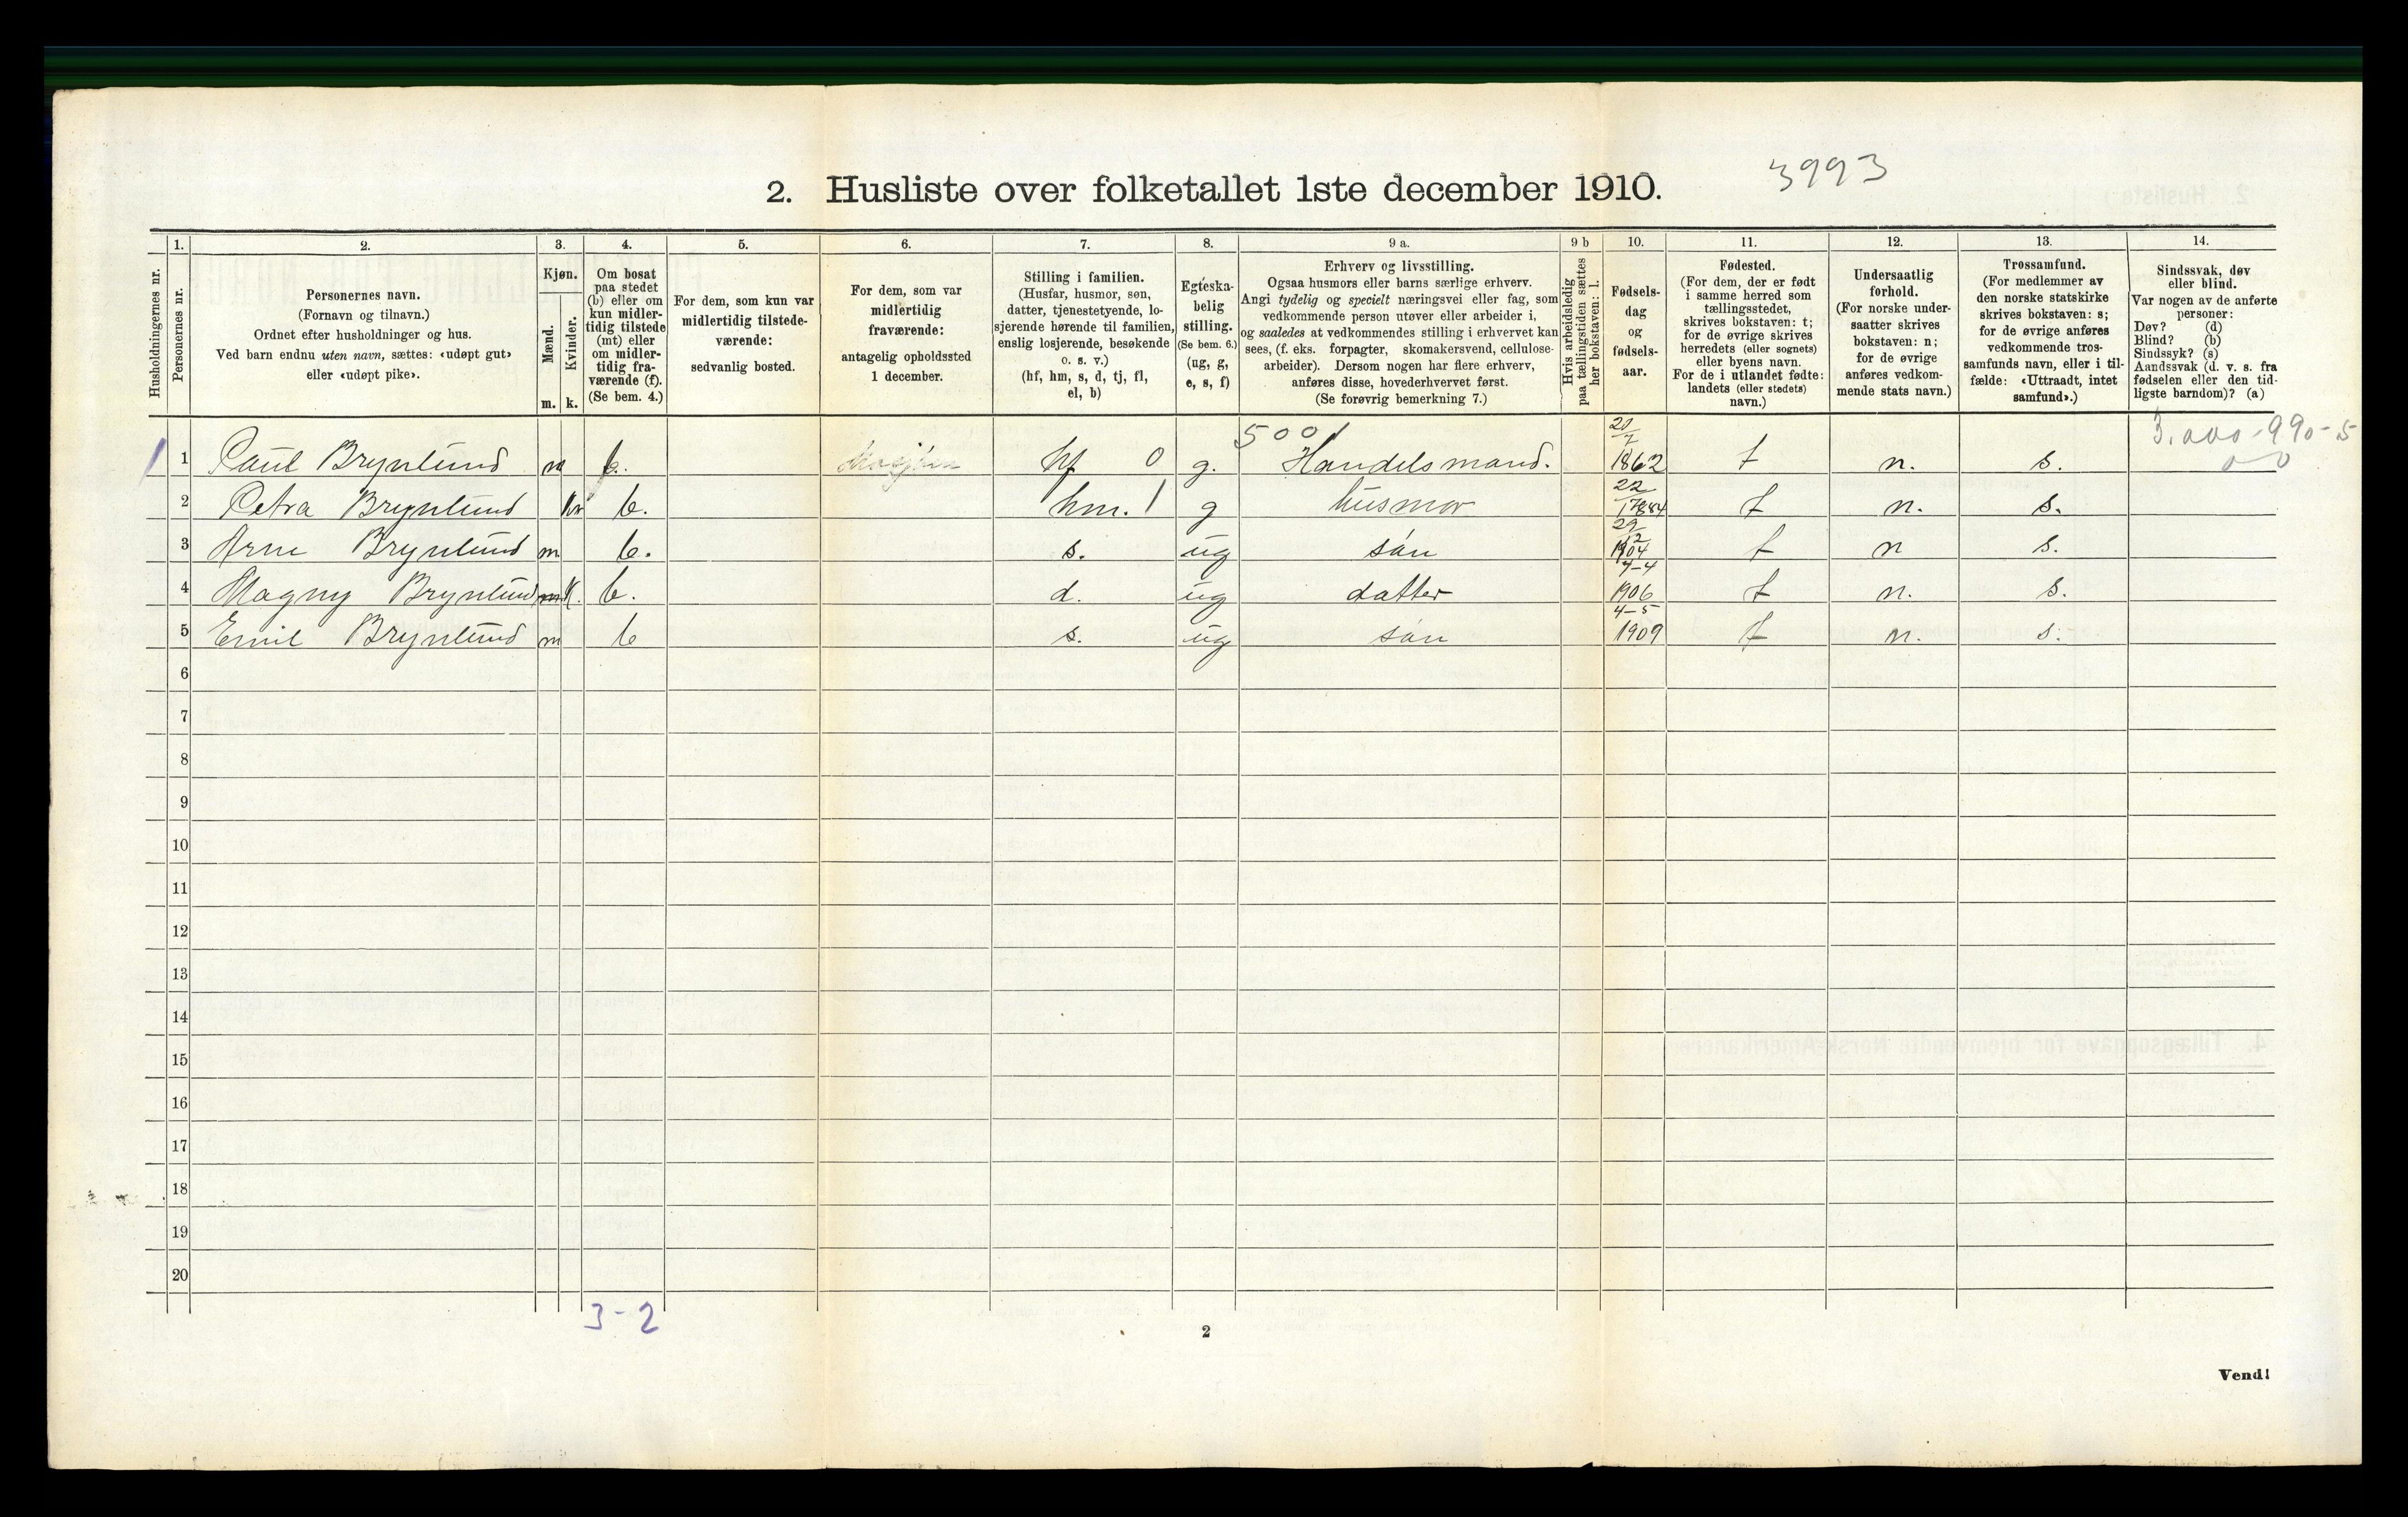 3993
2. Husliste over folketallet 1ste december 1910.
1. 2. 3. 4. 5. 6. 7. 8. 9 a. 9 b 10. 11. 12. 13. 14.
Husholdningernes nr.
Personernes nr.
Personernes navn.
(Fornavn og tilnavn.)
Ordnet efter husholdninger og hus.
Ved barn endnu uten navn, sættes: «udøpt gut»
eller «udøpt pike».
Kjøn.
Mænd.
Kvinder.
m. k.
Om bosat
paa stedet
(b) eller om
kun midler-
tidig tilstede
(mt) eller
om midler-
tidig fra-
værende (f).
(Se bem. 4.)
For dem, som kun var
midlertidig tilstede-
værende:
sedvanlig bosted.
For dem, som var
midlertidig
fraværende:
antagelig opholdssted
1 december.
Stilling i familien.
(Husfar, husmor, søn,
datter, tjenestetyende, lo-
sjerende hørende til familien,
enslig losjerende, besøkende
o. s. v.)
(hf, hm, s, d, tj, fl,
el, b)
Egteska-
belig
stilling.
(Se bem. 6.)
(ug, g,
e, s, f)
Erhverv og livsstilling.
Ogsaa husmors eller barns særlige erhverv.
Angi tydelig og specielt næringsvei eller fag, som
vedkommende person utøver eller arbeider i,
og saaledes at vedkommendes stilling i erhvervet kan
sees, (f. eks. forpagter, skomakersvend, cellulose-
arbeider). Dersom nogen har flere erhverv,
anføres disse, hovederhvervet først.
(Se forøvrig bemerkning 7.)
Hvis arbeidsledig
paa tællingstiden sættes
her bokstaven: l.
Fødsels-
dag
og
fødsels-
aar.
Fødested.
(For dem, der er født
i samme herred som
tællingsstedet,
skrives bokstaven: t;
for de øvrige skrives
herredets (eller sognets)
eller byens navn.
For de i utlandet fødte:
landets (eller stedets)
navn.)
Undersaatlig
forhold.
(For norske under-
saatter skrives
bokstaven: n;
for de øvrige
anføres vedkom-
mende stats navn.)
Trossamfund.
(For medlemmer av
den norske statskirke
skrives bokstaven: s;
for de øvrige anføres
vedkommende tros-
samfunds navn, eller i til-
fælde: «Uttraadt, intet
samfund».)
Sindssvak, døv
eller blind.
Var nogen av de anførte
personer:
Døv? (d)
Blind? (b)
Sindssyk? (s)
Aandssvak (d. v. s. fra
fødselen eller den tid-
ligste barndom)? (a)
5001 20/7 3.000-990-5
1 1 Paul Brynlund m b. hf 0 g. Handelsmand. 1862 t n. s. 0-0
2 Petra Brynlund k b. hm. 1 g husmor 22/7 1884 t n. s.
3 Arne Brynlund m b. s. ug søn 29/12 1904 t n s.
4 Magny Brynlund m k. b. d. ug datter 7-4 1906 t n. s.
5 Emil Brynlund m b s. ug søn 4-5 1909 t n. s.
6
7
8
9
10
11
12
13
14
15
16
17
18
19
20
3-2
2
Vend!